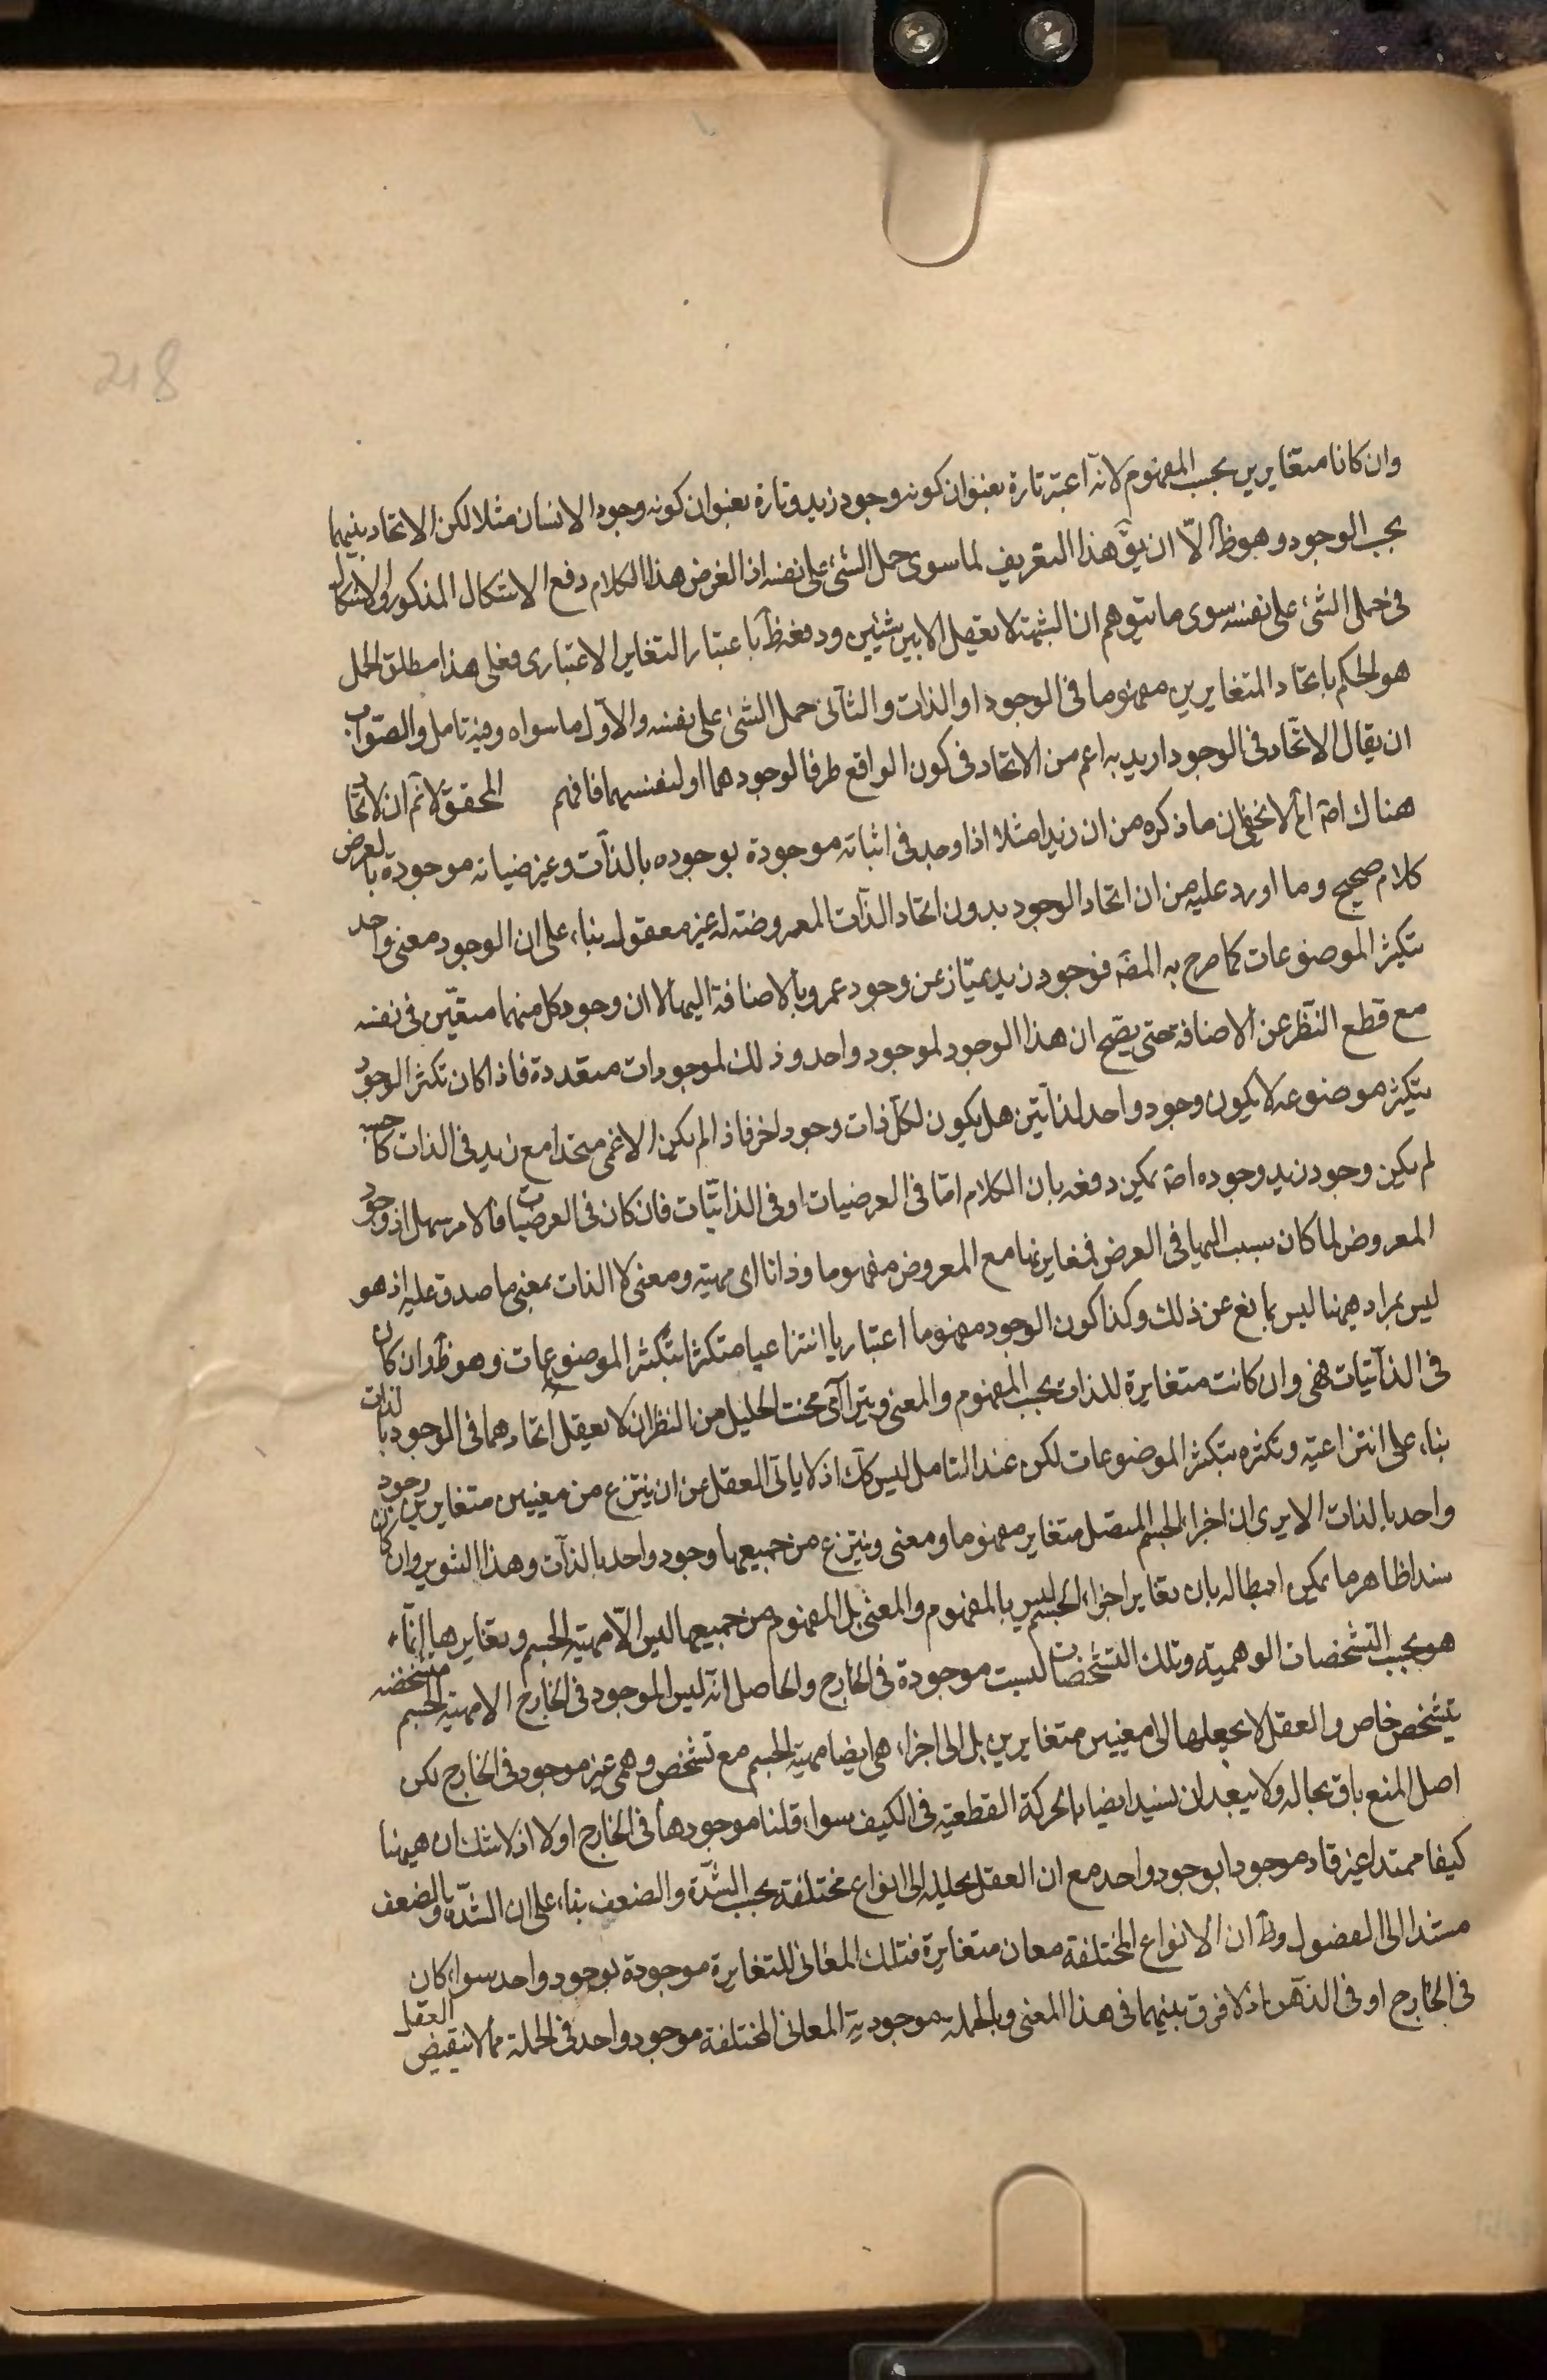 218
وان كانا متغايرين بحسب المفهوم لانه اعتبر تارة بعنوان كونه وجود زيد وتارة بعنوان كونه وجود الانسان مثلا لكن الاتحاد بينهما
بحسب الوجود وهو ظ الّا ان يق هذا التعريف لما سوى حمل الشئ على نفسه اذ الغرض هذا الكلام دفع الاشكال المذكور ولا اشكال
فى حمل الشئ على نفسه سوى ما يتوهم ان النسبة لا تعقل الا بين شيئين ودفعه ظ باعتبار التغاير الاعتبارى فعلى هذا مطلق الحمل
هو الحكم باتحاد المتغايرين مفهوما فى الوجود او الذات والثانى حمل الشئ على نفسه والاول ما سواه وفيه تامل والصواب
ان يقال الاتحاد فى الوجود اريد به اعم من الاتحاد فى كون الواقع ظرفا لوجودهما او لنفسهما فافهم المحقق لا نم ان لا اتحاد
هناك اه لا يخفى ان ما ذكره من ان زيدا مثلا اذا وجد فى اثباته موجودة بوجوده بالذات وعرضياته موجودة بالعرض
كلام صحيح وما اورد عليه من ان اتحاد الوجود بدون اتحاد الذات المعروضة له غير معقول بناء على ان الوجود معنى واحد
يتكثر الموضوعات كما صرح به المصّ فوجود زيد يمتاز عن وجود عمرو بالاضافة اليهما لا ان وجود كل منهما متعين فى نفسه
مع قطع النظر عن الاضافة حتى يصّح ان هذا الوجود لموجود واحد وذلك لموجودات متعددة فاذا كان تكثر الوجود
بتكثر موضوعه لا يكون وجود واحد لذاتين هل يكون لكل ذات وجود اخر فاذا لم يكن الاعمى متحدا مع زيد فى الذات كا حسبه
لم يكن وجود زيد وجوده اه يمكن دفعه بان الكلام امّا فى العرضيات او فى الذاتيات فان كان فى العرضيات فالامر سهل اذ وجود
المعروض لما كان ينسب اليها فى العرض فمغايرتها مع المعروض مفهوما وذاتا اى مهية ومعنى لا الذات بمعنى ما صدق عليه اذ هو
ليس بمراد ههنا ليس بمانع عن ذلك وكذا كون الوجود مفهوما اعتباريا انتزاعيا متكثرا بتكثر الموضوعات وهو ظ وان كان
فى الذاتيات فهى وان كانت متغايرة للذات بحسب المفهوم والمعنى ويترائى بحسب الجليل من النظر ان لا يعقل اتحادهما فى الوجود بالذات
بناء على انتزاعيته وتكثره بتكثر الموضوعات لكن عند التامل ليس كك اذ لا يابى العقل عن ان ينتزع من معنيين متغايرين وجود
واحد بالذات الا يرى ان اجزاء الجسم المتصل متغاير مفهوما ومعنى وينتزع من جميعها وجود واحد بالذات وهذا التنوير وان كان
سندا ظاهرا ما يمكن ابطاله بان تغاير اجزاء الجسم ليس بالمفهوم والمعنى بل المفهوم من جميعها ليس الّا مهية الجسم وتغايرها انّما
هو بحسب التشخصات الوهمية وتلك التشخصات ليست موجودة فى الخارج والحاصل انه ليس الموجود فى الخارج الا مهية الجسم متشخصة
بتشخص خاص والعقل لا يحللها الى معنيين متغايرين بل الى اجزاء هى ايضا مهية الجسم مع تشخص وهمى غير موجود فى الخارج لكن
اصل المنع باق بحاله ولا يبعد ان نسند ايضا بالحركة القطعية فى الكيف سواء قلنا موجودها فى الخارج او لا اذ لا شك ان ههنا
كيفا ممتدا غير قار موجودا بوجود واحد مع ان العقل يحلله الى انواع مختلفة بحسب الشدّة والضعف بناء على ان الشدّة والضعف
مستندا الى الفصول وظ ان الانواع المختلفة معان متغايرة فتلك المعانى المتغايرة موجودة بوجود واحد سواء كان
فى الخارج او فى الذهن اذ لا فرق بينهما فى هذا المعنى وبالجملة موجودية المعانى المختلفة موجود واحد فى الجملة مما لا ينقبض العقل